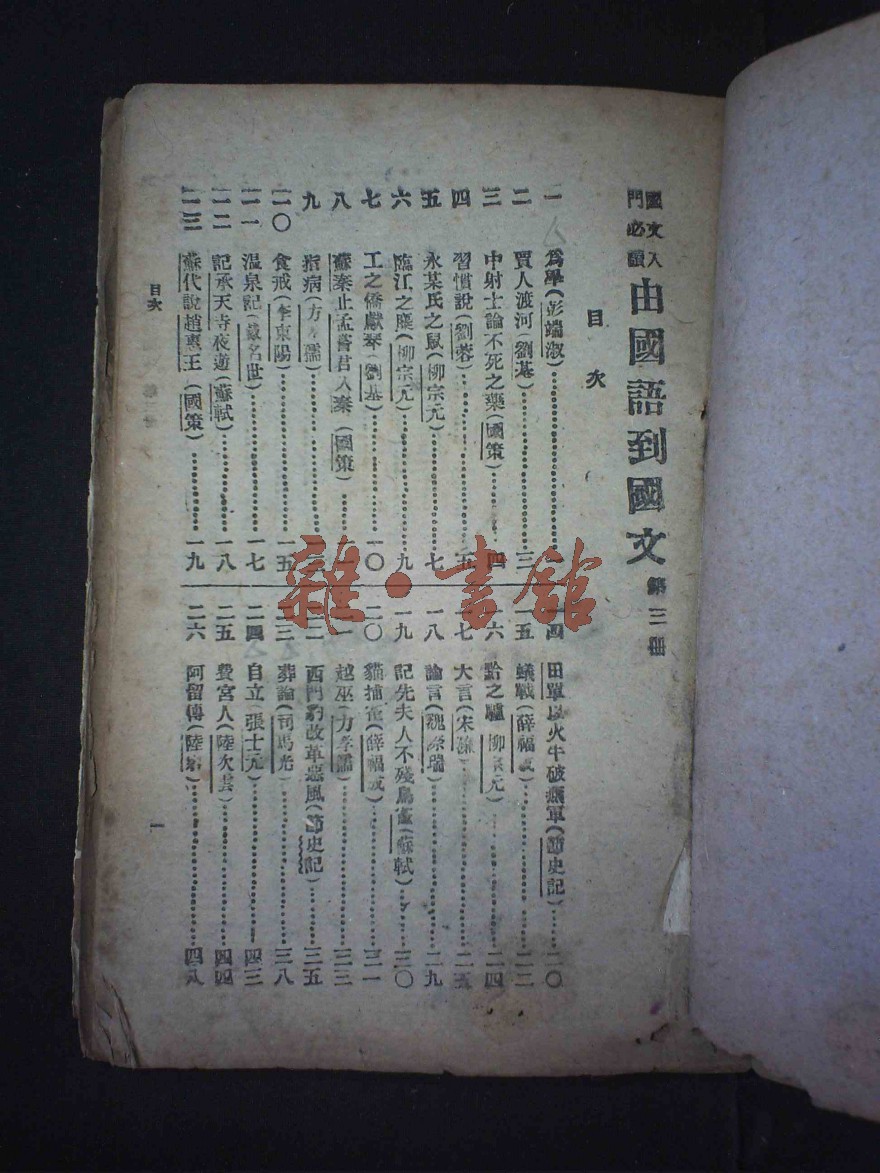 國文入
門必讀
由國語到國文 第三冊
目次
一 爲學(彭端淑)
二 賈人渡河(劉基)……三
三 中射士論不死之藥(國策)……四
四 習慣說(劉蓉)……五
五 永某氏之鼠(柳宗元)……七
六 臨江之麋(柳宗元)……九
七 工之僑獻琴(劉基)……一〇
八 蘇秦止孟嘗君入秦(國策)……
九 指病(方孝孺)……
一〇 食戒(李東陽)……一五
一一 溫泉記(戴名世)……一七
一二 記承天寺夜遊(蘇軾)……一八
一三 蘇代說趙惠王(國策)……一九
一四 田單以火牛破燕軍(節史記)……二〇
一五 蟻戰(薛福成)……二二
一六 黔之驢(柳宗元)……二四
一七 大言(宋濂)……二五
一八 論言(魏際瑞)……二九
一九 記先夫人不殘鳥雀(蘇軾)……三〇
二〇 貓捕雀(薛福成)……三一
二一 越巫(方孝孺)……三三
二二 西門豹改革惡風(節史記)……三五
二三 葬論(司馬光)……三八
二四 自立(張士元)……四三
二五 費宮人(陸次雲)……四四
二六 阿留傳(陸容)……四八
目次
一
雜·書館